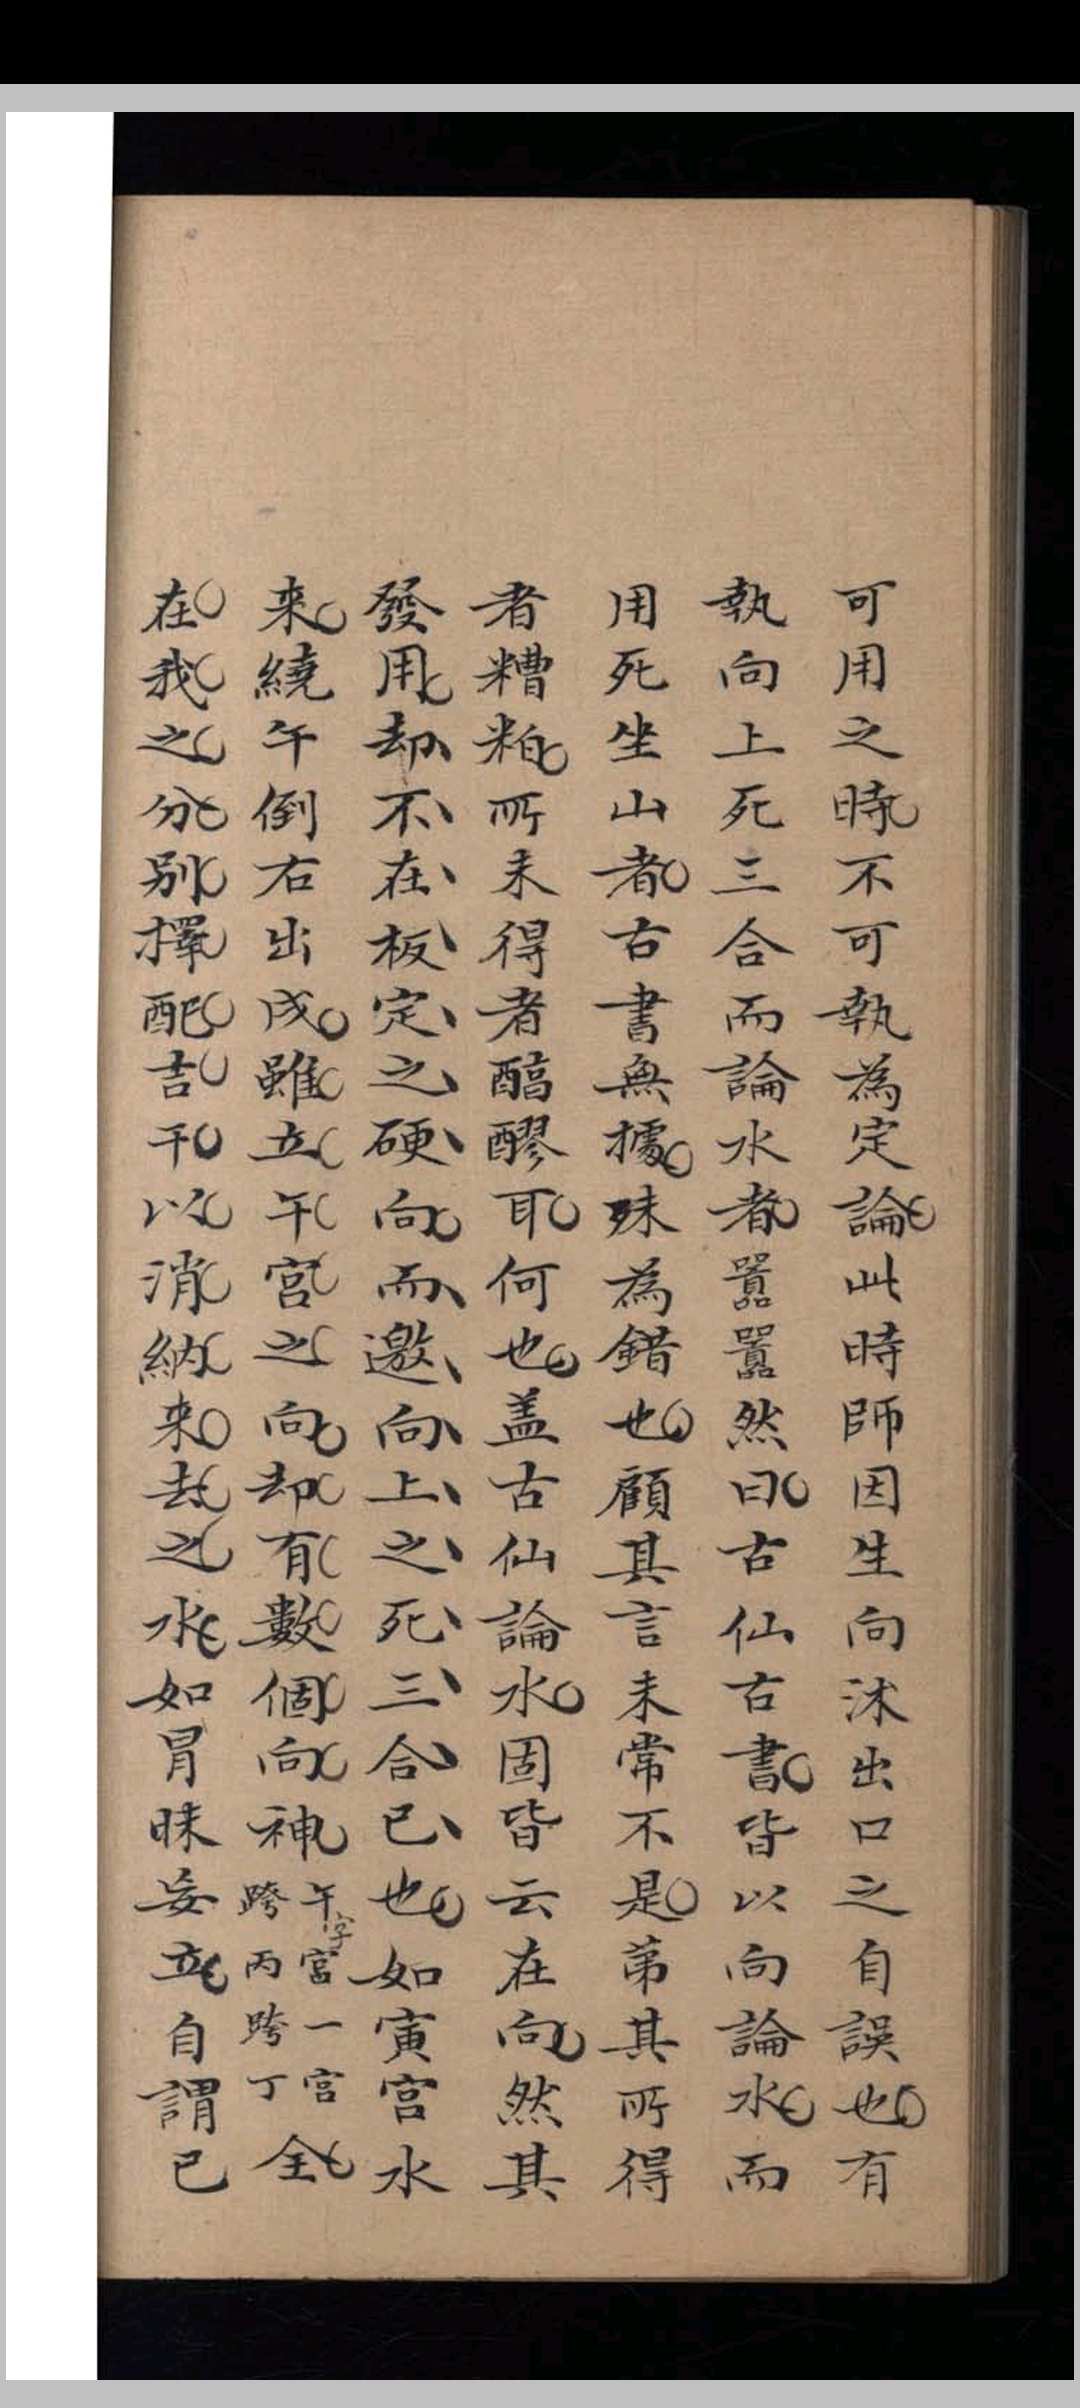 可用之時不可執為定論此時師因生向沐出口之自誤也有
執向上死三合而論水者嚣嚣然曰古仙古書皆以向論水而
用死坐山者古書無據殊為錯也顧其言未常不是苐其所得
者糟粕所未得者醕醪耳何也盖古仙論水固皆云在向然其
發用却不在板定之硬向而邀向上之死三合已也如寅宮水
來繞午倒右出戌雖立午宮之向却有數個向神午字宮一宮跨丙跨丁全
在我之分別擇配吉干以消納来去之水如冐昧妄立自謂已